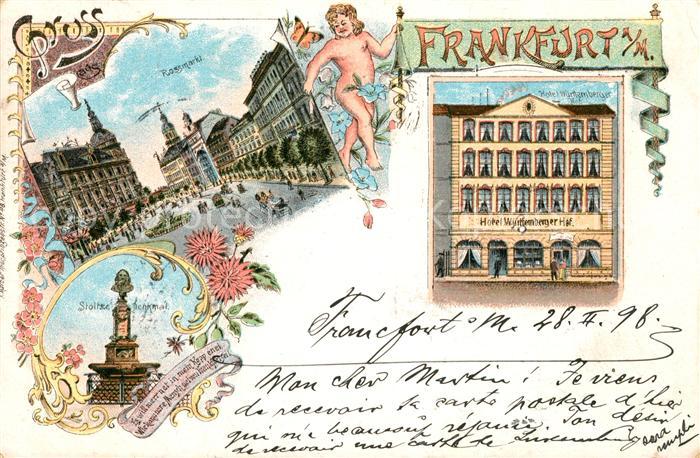 Gruss
aus
FRANKFURT a/M.
Rossmarkt
Hotel Württemberger
Hotel Württemberger Hof.
Stoltze Denkmal
Francfort s/M. 28. II. 98.
Mon cher Martin! Je viens
de recevoir ta carte postale d'hier
qui m'a beaucoup réjoui. Ton désir
de recevoir une carte de Luxembourg
sera
rempli